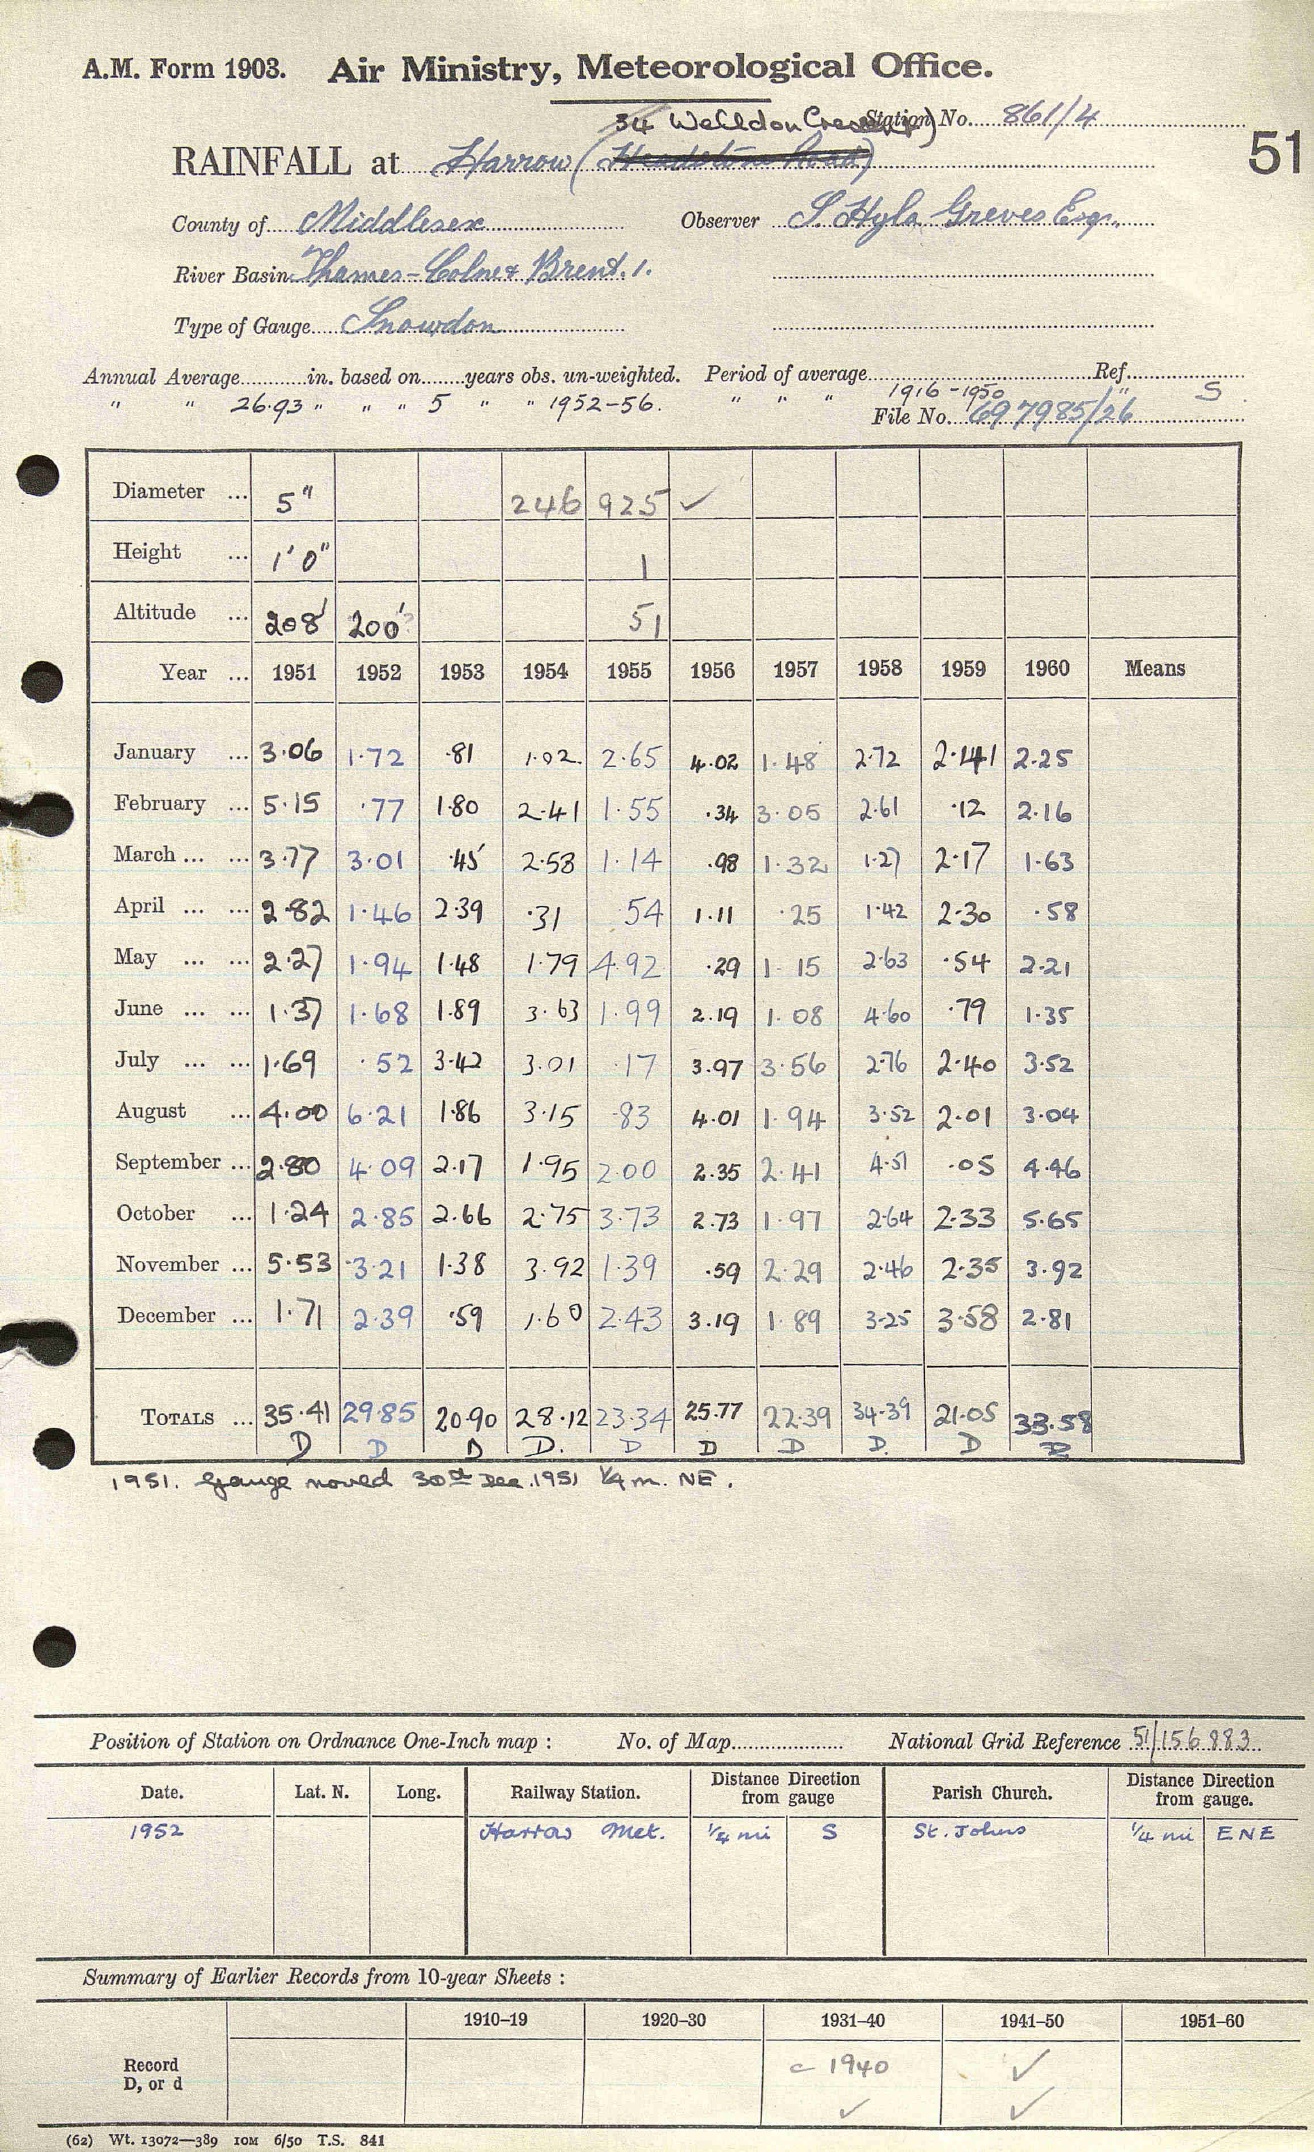 A.M. Form 1903. Air Ministry, Meteorological Office.
34 Welldon Crescent) Station No. 861/4
RAINFALL at Harrow (Headstone Road) 51
County of Middlesex Observer S. Hyla Greves Esqr.
River Basin Thames-Colne & Brent. 1.
Type of Gauge Snowdon
Annual Average in. based on years obs. un-weighted. Period of average Ref.
" " 26.93 " " " 5 " " 1952-56. " " " 1916-1950 " S
File No. 697985/26
Diameter ... 5" 246 925 ✓
Height ... 1' 0" 1
Altitude ... 208' 200'? 51
Year ... 1951 1952 1953 1954 1955 1956 1957 1958 1959 1960 Means
January ... 3.06 1.72 .81 1.02 2.65 4.02 1.48 2.72 2.41 2.25
February ... 5.15 .77 1.80 2.41 1.55 .34 3.05 2.61 .12 2.16
March ... ... 3.77 3.01 .45 2.58 1.14 .98 1.32 1.27 2.17 1.63
April ... ... 2.82 1.46 2.39 .31 .54 1.11 .25 1.42 2.30 .58
May ... ... 2.27 1.94 1.48 1.79 4.92 .29 1.15 2.63 .54 2.21
June ... ... 1.37 1.68 1.89 3.63 1.99 2.19 1.08 4.60 .79 1.35
July ... ... 1.69 .52 3.42 3.01 .17 3.97 3.56 2.76 2.40 3.52
August ... 4.00 6.21 1.86 3.15 .83 4.01 1.94 3.52 2.01 3.04
September ... 2.80 4.09 2.17 1.95 2.00 2.35 2.41 4.51 .05 4.46
October ... 1.24 2.85 2.66 2.75 3.73 2.73 1.97 2.64 2.33 5.65
November ... 5.53 3.21 1.38 3.92 1.39 .59 2.29 2.46 2.35 3.92
December ... 1.71 2.39 .59 1.60 2.43 3.19 1.89 3.25 3.58 2.81
TOTALS ... 35.41 29.85 20.90 28.12 23.34 25.77 22.39 34.39 21.05 33.58
D D D D. D D D D. D
1951. Gauge moved 30th Dec. 1951 ¼ m. NE.
Position of Station on Ordnance One-Inch map : No. of Map National Grid Reference 51/156883
Date. Lat. N. Long. Railway Station. Distance Direction from gauge Parish Church. Distance Direction from gauge.
1952 Harrow Met. ¼ mi S St. Johns ¼ mi ENE
Summary of Earlier Records from 10-year Sheets :
1910–19 1920–30 1931–40 1941–50 1951–60
Record D, or d c 1940 ✓
✓ ✓
(62) Wt. 13072—389 10M 6/50 T.S. 841